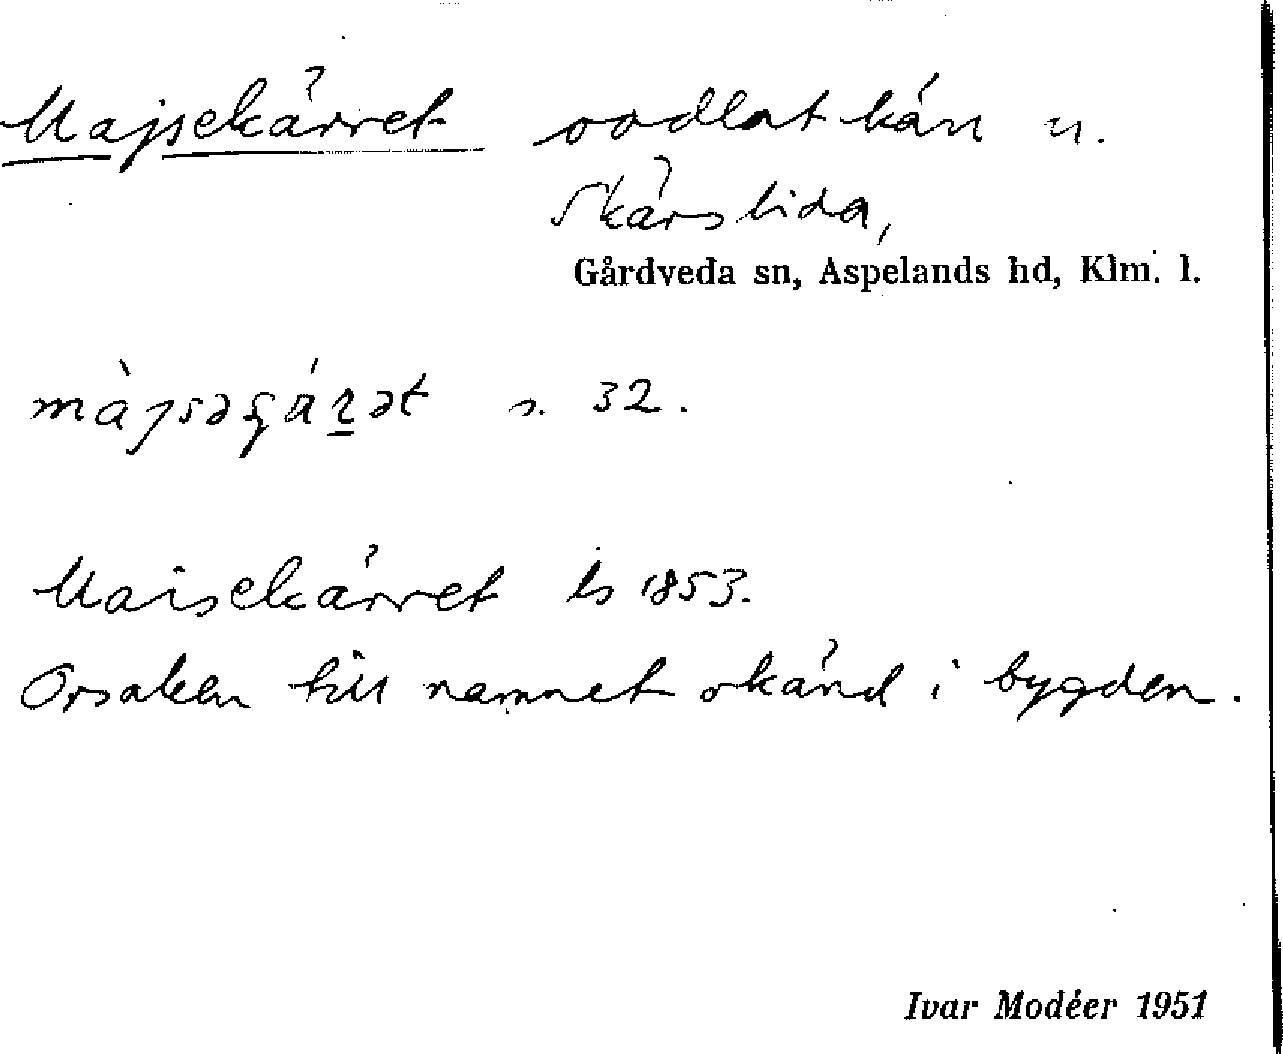 Majsekärret oodlat kärr u.
Skärslida,
Gårdveda sn, Aspelands hd, Klm. l.
s. 32.
Maisekärret ls 1853.
Orsaken till namnet okänd i bygden.
Ivar Modéer 1951